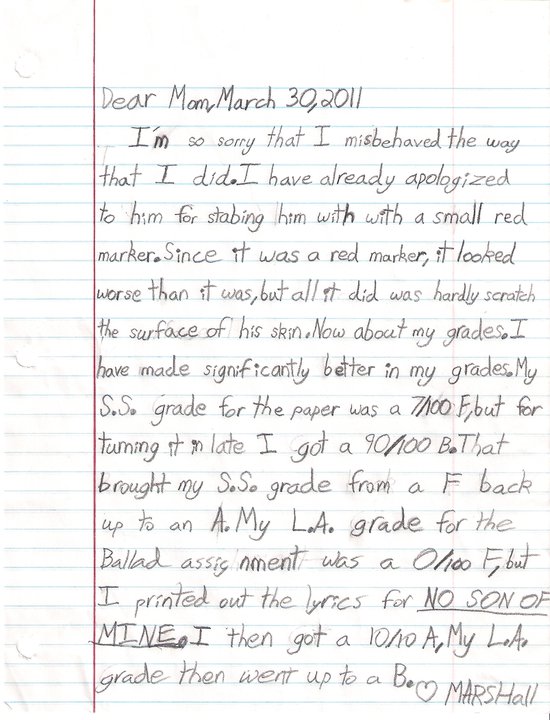 Dear Mom, March 30, 2011
I'm so sorry that I misbehaved the way
that I did. I have already apologized
to him for stabing him with with a small red
marker. Since it was a red marker, it looked
worse than it was, but all it did was hardly scratch
the surface of his skin. Now about my grades. I
have made significantly better in my grades. My
S.S. grade for the paper was a 7/100 F, but for
turning it in late I got a 90/100 B. That
brought my S.S. grade from a F back
up to an A. My L.A. grade for the
Ballad assignment was a 0/100 F, but
I printed out the lyrics for NO SON OF
MINE. I then got a 10/10 A, My L.A.
grade then went up to a B. ♡ MARSHall